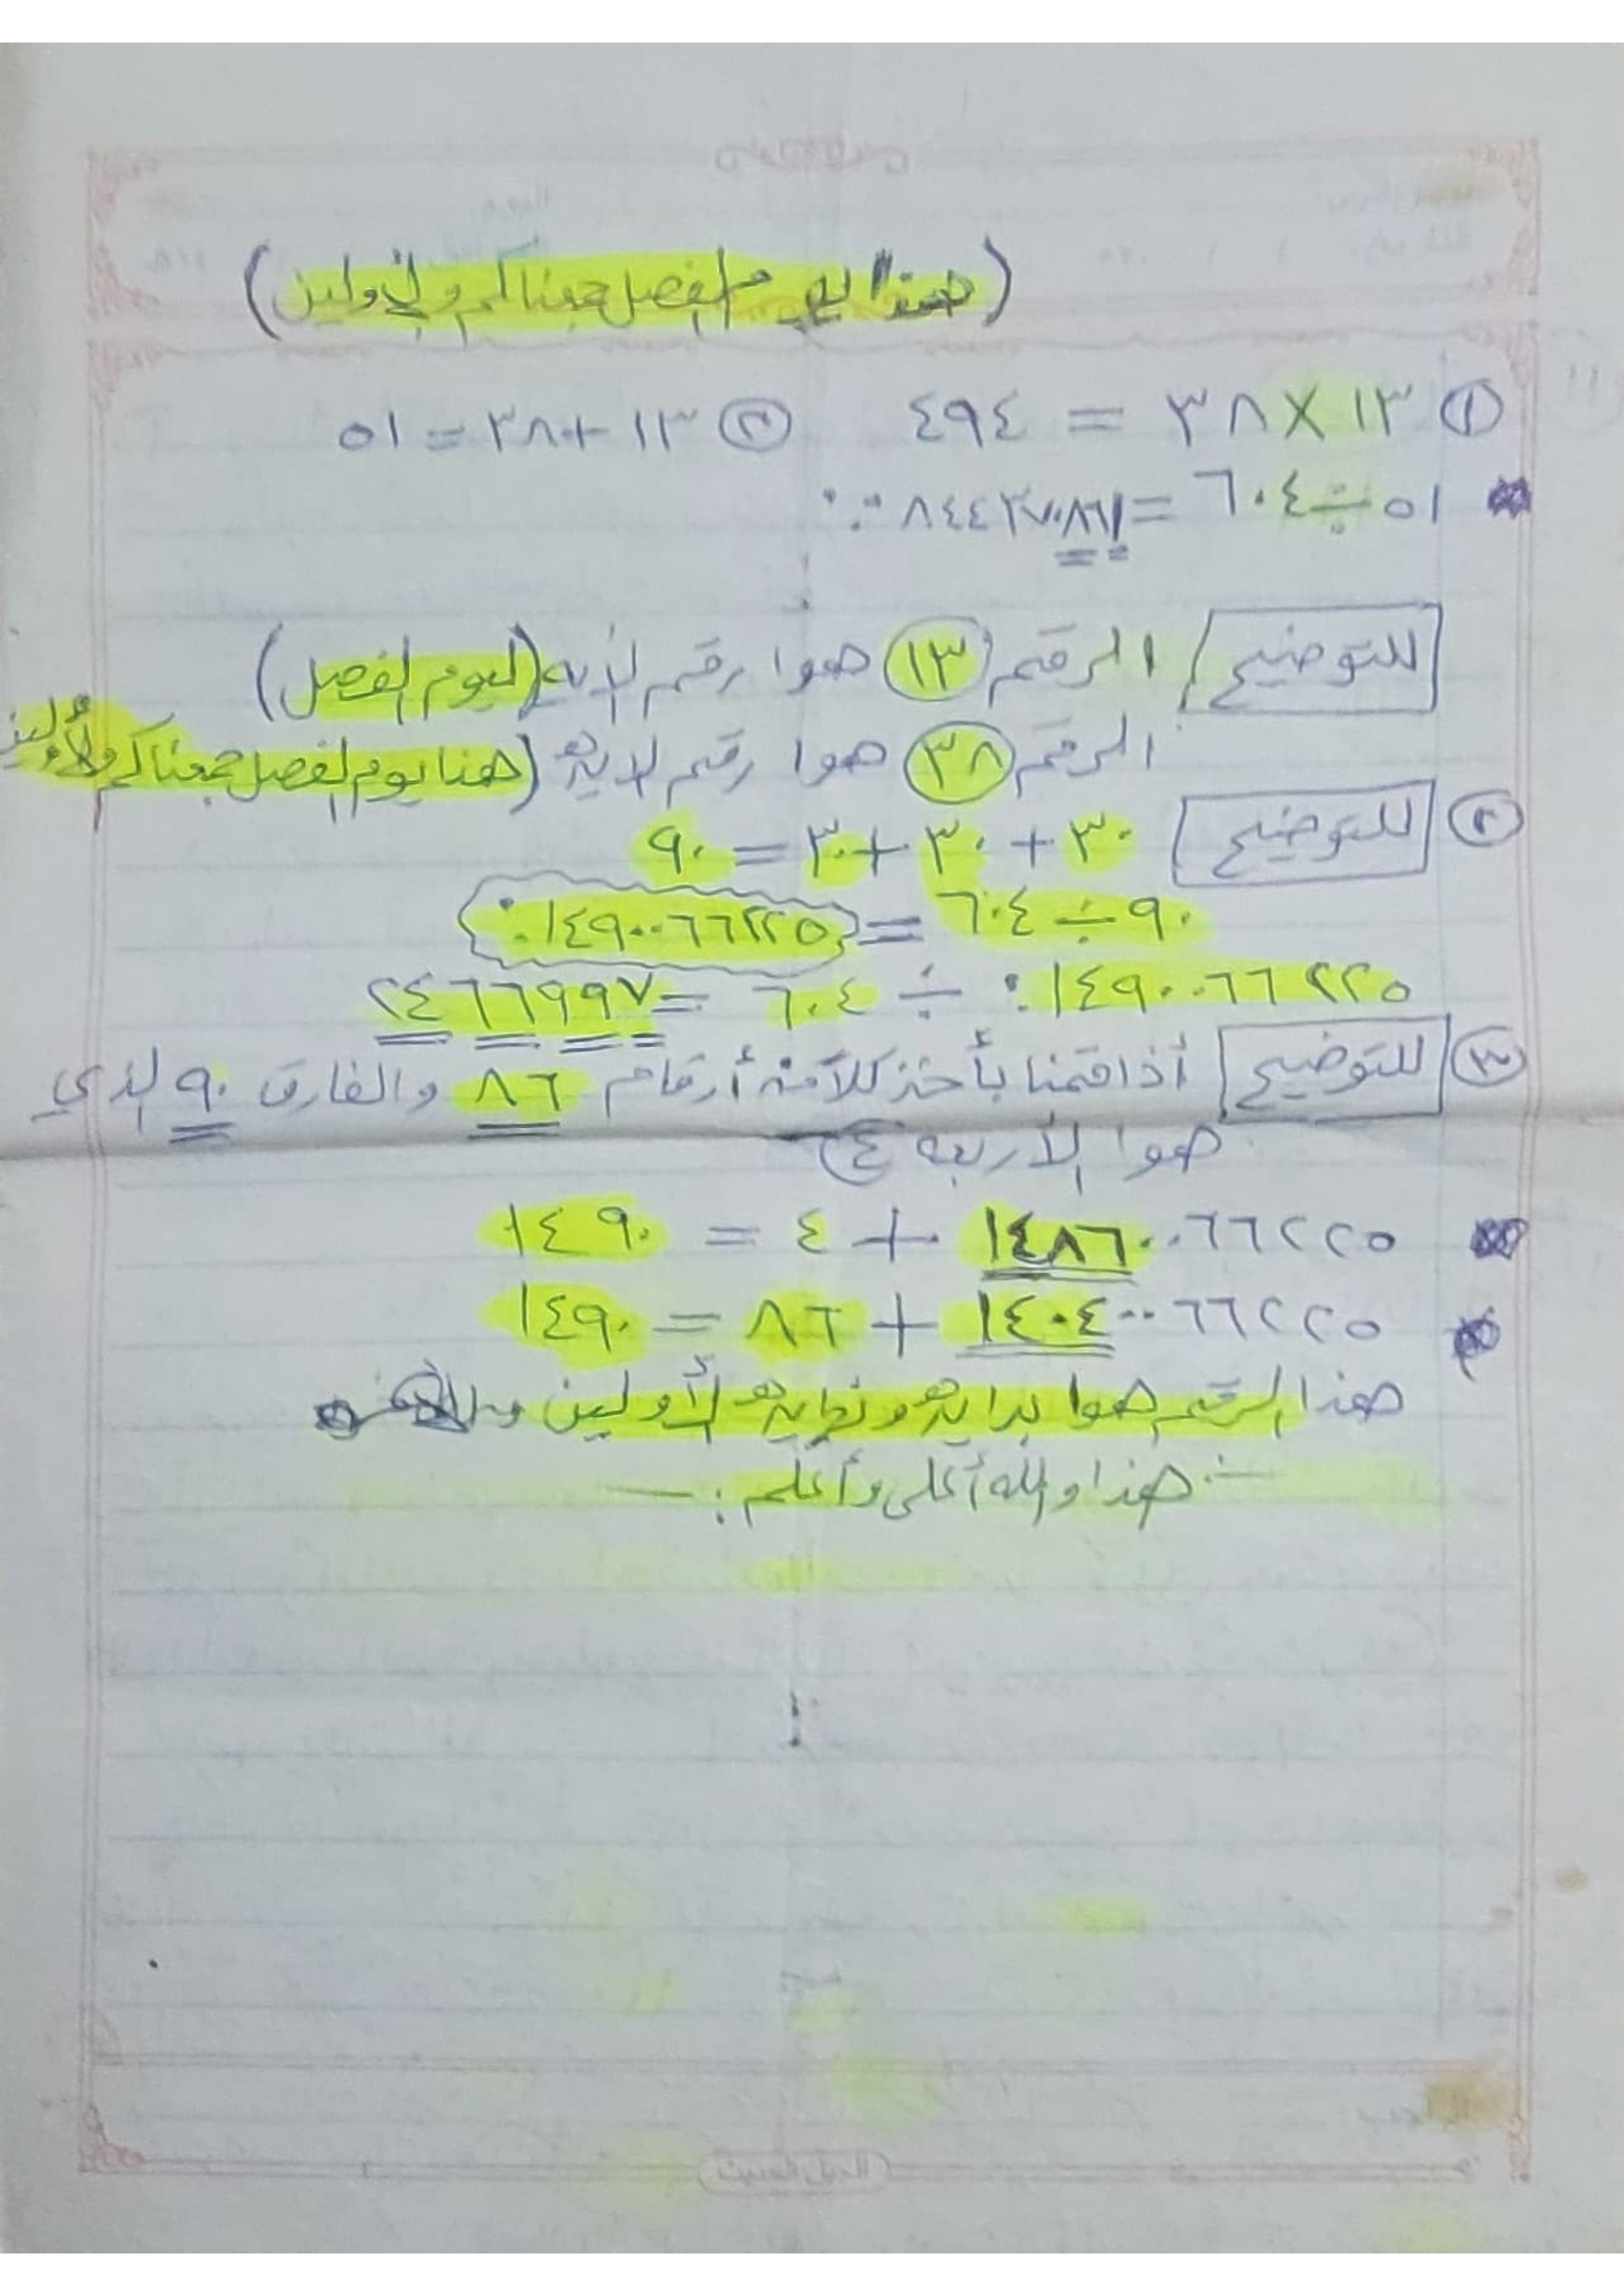 (هذا يوم الفصل جمعناكم والأولين)
① ١٣ × ٣٨ = ٤٩٤ ② ١٣ + ٣٨ = ٥١
٥١ ÷ ٦٠٤ =
للتوضيح الرقم ١٣ هوا رقم الأيه (ليوم الفصل)
الرقم ٣٨ هوا رقم الايه (هذا يوم الفصل جمعناكم والأولين
② للتوضيح ٣٠ + ٣٠ + ٣٠ = ٩٠
٩٠ ÷ ٦٠٤ = ٠.١٤٩٠٠٦٦٢٢٥
٠.١٤٩٠٠٦٦٢٢٥ ÷ ٦٠٤ = ٢٤٦٦٩٩٧
③ للتوضيح أذا قمنا بأخذ كلاً من أرقام ٨٦ والفارق ٩٠ الذي
هوا الأربعه ٤
١٤٨٦٠٠٦٦٢٢٥ + ٤ = ١٤٩٠
١٤٠٤٠٠٦٦٢٢٥ + ٨٦ = ١٤٩٠
هذا الرقم هوا بدايه ونهايه الأولين
هذا والله أعلى وأعلم :